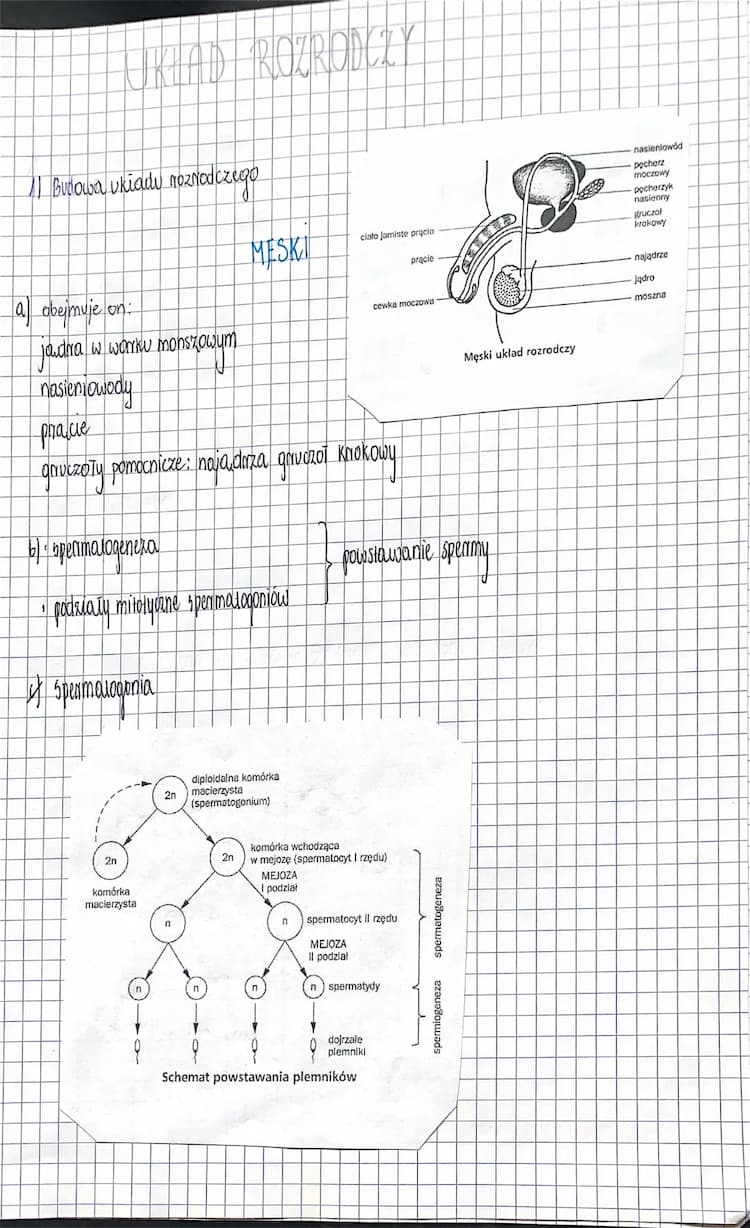 UKŁAD ROZRODCZY
1) Budowa układu rozrodczego
MĘSKI
nasieniowód
pęcherz
moczowy
pęcherzyk
nasienny
gruczoł
krokowy
ciało jamiste prącia
prącie
cewka moczowa
najądrze
jądro
moszna
Męski układ rozrodczy
a) obejmuje on:
jądra w worku monszowym
nasieniowody
prącie
gruczoły pomocnicze: najądrza gruczoł krokowy
b) • spermatogeneza
• podziały mitotyczne spermatogoniów
powstawanie spermy
c) spermatogonia
2n
diploidalna komórka
macierzysta
(spermatogonium)
2n
komórka
macierzysta
2n
komórka wchodząca
w mejozę (spermatocyt I rzędu)
MEJOZA
I podział
n
n
spermatocyt II rzędu
MEJOZA
II podział
n
n
n
n
spermatydy
dojrzałe
plemniki
spermatogeneza
spermiogeneza
Schemat powstawania plemników